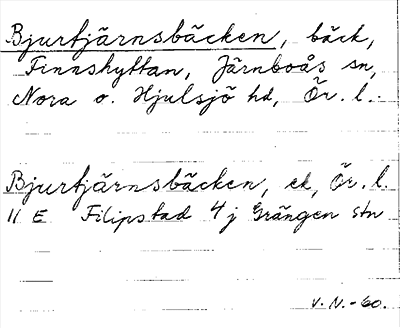 Bjurtjärnsbäcken, bäck,
Finnshyttan, Järnboås sn,
Nora o. Hjulsjö hd, Ör. l.
Bjurtjärnsbäcken, ek, Ör. l.
11 E Filipstad 4 j Grängen stn
V. N. -60.